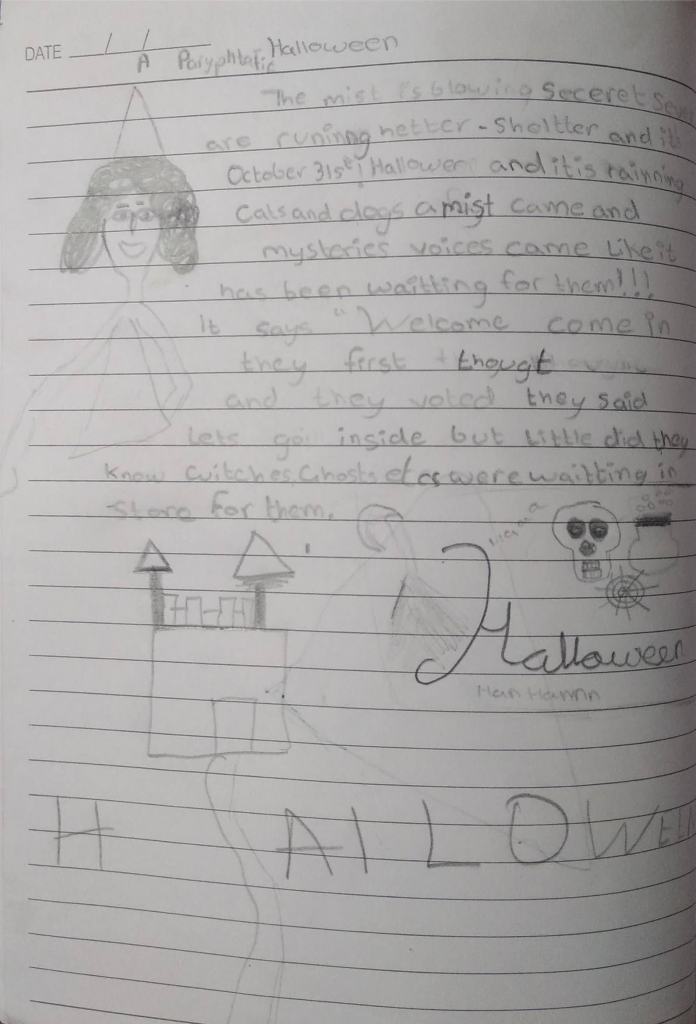 DATE / /
A Paryphtatic Halloween
The mist is blowing seceret Seven
are runinng hetter-sheltter and it
October 31st i Halloween and it is rainning
Cats and dogs a mist came and
mysteries voices came like it
has been waitting for them!!!
it says "Welcome come in
they first thougt
and they voted they said
lets go inside but little did they
know witches, Ghosts etcs were waitting in
store for them.
Halloween
H A l L O W